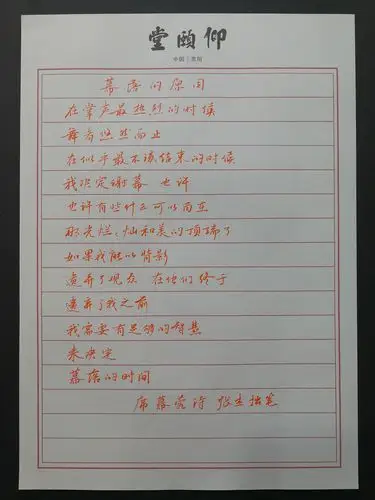 仰頤堂
中国
幕落的原因
在掌声最热烈的时候
舞者悠然而止
在似乎最不该结束的时候
我决定谢幕 也许
也许有些什么可以
那光烂、灿和美的顶端了
如果我能以背影
遗弃了观众 在他们终于
遗弃了我之前
我需要有足够的智慧
来决定
幕落的时间
席慕蓉诗 张 拙笔